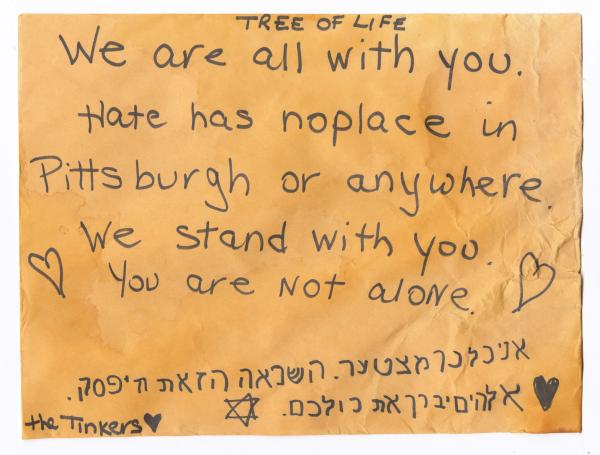 TREE OF LIFE
We are all with you.
Hate has noplace in
Pittsburgh or anywhere.
We stand with you.
You are NOT aloNe.
אני כל כך מצטער. השנאה הזאת תיפסק.
אלהים יברך את כולכם.
the Tinkers